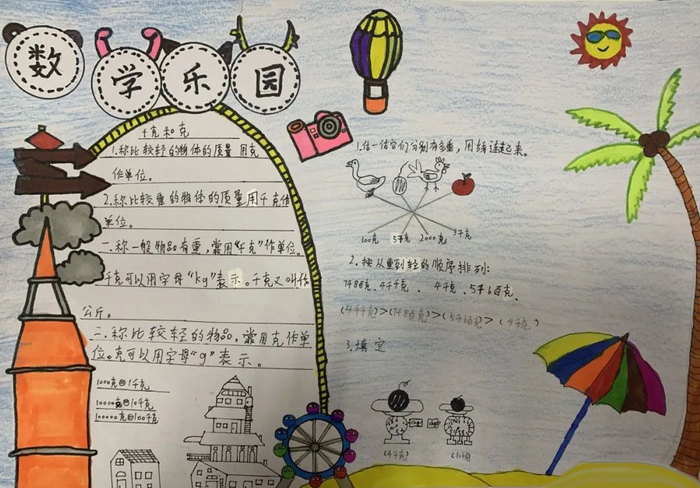 数学乐园
千克和克
1.称比较轻的物体的质量用克
作单位。
2.称比较重的物体的质量用千克作
单位。
一.称一般物品有重,常用“千克”作单位。
千克可以用字母“kg”表示。千克又叫作
公斤。
二.称比较轻的物品,常用克作单
位。克可以用字母“g”表示。
1000克=1千克
10000克=10千克
100000克=100千克
1.估一估它们分别有多重,用线连起来。
300克 5千克 2000克
2.按从重到轻的顺序排列:
4千克、5千
(4千克)
3.填空
(4千克)